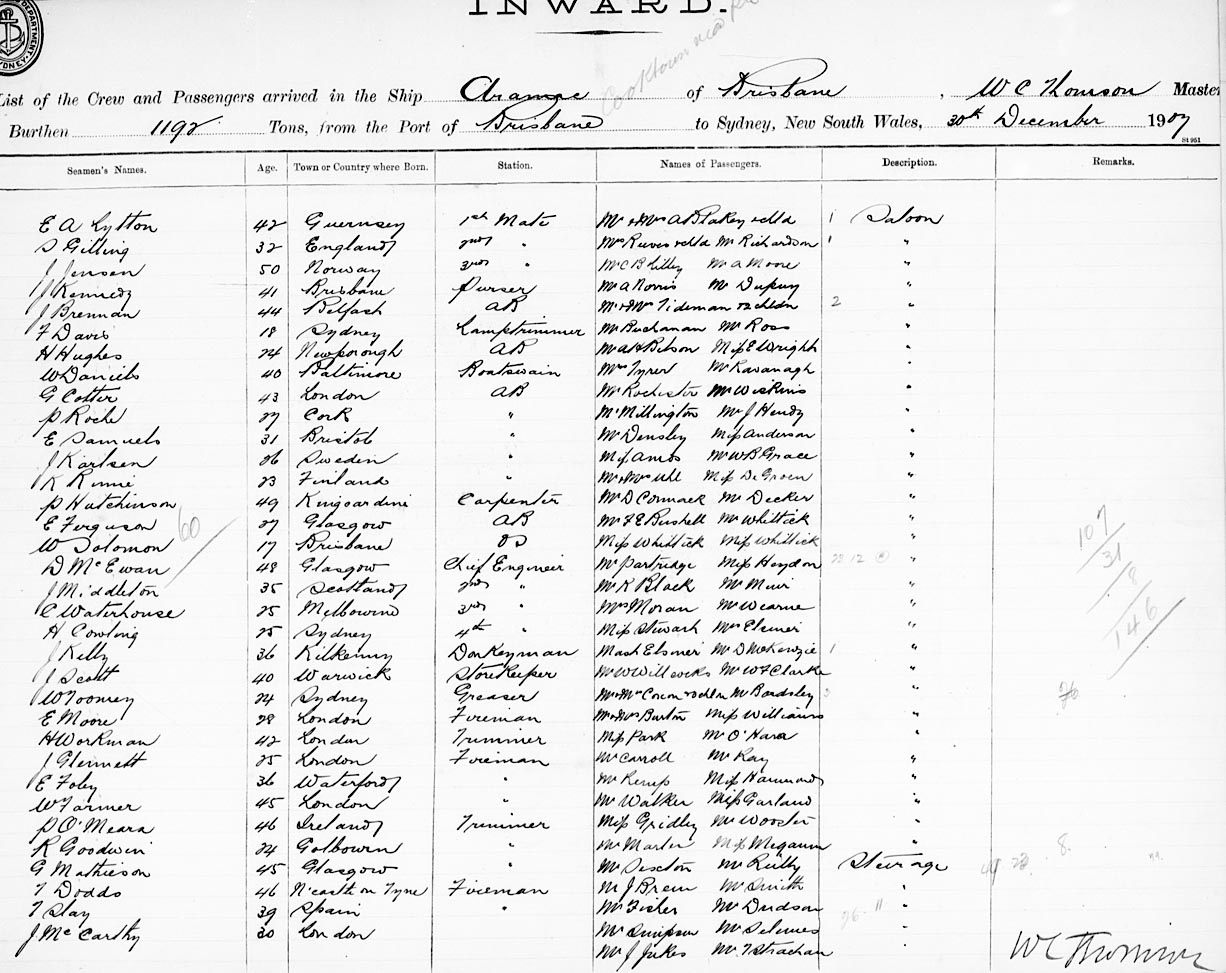 INWARD.
DEPARTMENT
SYDNEY
Cooktown via
List of the Crew and Passengers arrived in the Ship Aramac of Brisbane, W C Thomson Master
Burthen 1192 Tons, from the Port of Brisbane to Sydney, New South Wales, 30th December 1907
Seamen's Names. Age. Town or Country where Born. Station. Names of Passengers. Description. Remarks.
E A Lytton 42 Guernsey 1st Mate Mr & Mrs A Blakey & chld 1 Saloon
S Gilling 32 England 2nd " Mrs Reeves & chld Mr Richardson 1 "
J Jensen 50 Norway 3rd " Mr C B Lilley Mr A Moore "
J Kennedy 41 Brisbane Purser Mr A Norris Mr Dupuy "
J Brennan 44 Belfast AB Mr & Mrs Tideman & 2 chldn 2 "
F Davis 18 Sydney Lamptrimmer Mr Buchanan Mr Ross "
H Hughes 24 Newborough AB Mr A H Belson Miss E Wright "
W Daniels 40 Baltimore Boatswain Mrs Tyrer Mr Kavanagh "
G Cotter 43 London AB Mr Rochester Mr Weskins "
P Roche 27 Cork " Mr Millington Mr J Hendy "
E Samuels 31 Bristol " Mr Densley Miss Anderson "
J Karlsen 26 Sweden " Miss Amos Mr W B Grace "
K Rinne 23 Finland " Mr & Mrs Uhl Miss De Groen "
P Hutchinson 49 Kingoardine Carpenter Mr D Cormack Mr Decker "
E Ferguson 27 Glasgow AB Mr F E Bushell Mr Whittick "
60
W Solomon 17 Brisbane OS Miss Whittick Miss Whittick "
D McEwan 48 Glasgow Chief Engineer Mr Partridge Miss Heydon 12 "
J Middleton 35 Scotland 2nd " Mr K Black Mr Muir "
C Waterhouse 25 Melbourne 3rd " Mrs Moran Mr Wearne "
H Cowling 25 Sydney 4th " Miss Stewart Mrs Elsmer "
J Kelly 36 Kilkenny Donkeyman Mast Elsmer Mr D McKenzie 1 "
J Scott 40 Warwick Storekeeper Mr W Willcocks Mr W F Clarke "
W Toomey 24 Sydney Greaser Mr & Mrs & chldn Mr Bardsley 3 "
E Moore 28 London Fireman Mr & Mrs Burton Miss Williams "
H Workman 42 London Trimmer Miss Park Mr O'Hara "
J Glennett 25 London Fireman Mr Carroll Mr Kay "
E Foley 36 Waterford " Mr Kemp Miss Hammond "
W Farmer 45 London " Mr Walker Miss Garland "
P O'Meara 46 Ireland Trimmer Miss Gridley Mr Wooster "
R Goodwin 24 Golbourn " Mr Marter Miss Megaum "
G Mathieson 45 Glasgow " Mr Sexton Mr Reilly Steerage
T Dodds 46 N'castle on Tyne Fireman Mr J Brem Mr Smith "
T Slay 39 Spain " Mr Fisher Mr Dudson "
J McCarthy 30 London Mr Simpson Mr Selmes "
Mr J Jukes Mr T Strachan "
107
31
8
146
26
8.
26 11
W C Thomson